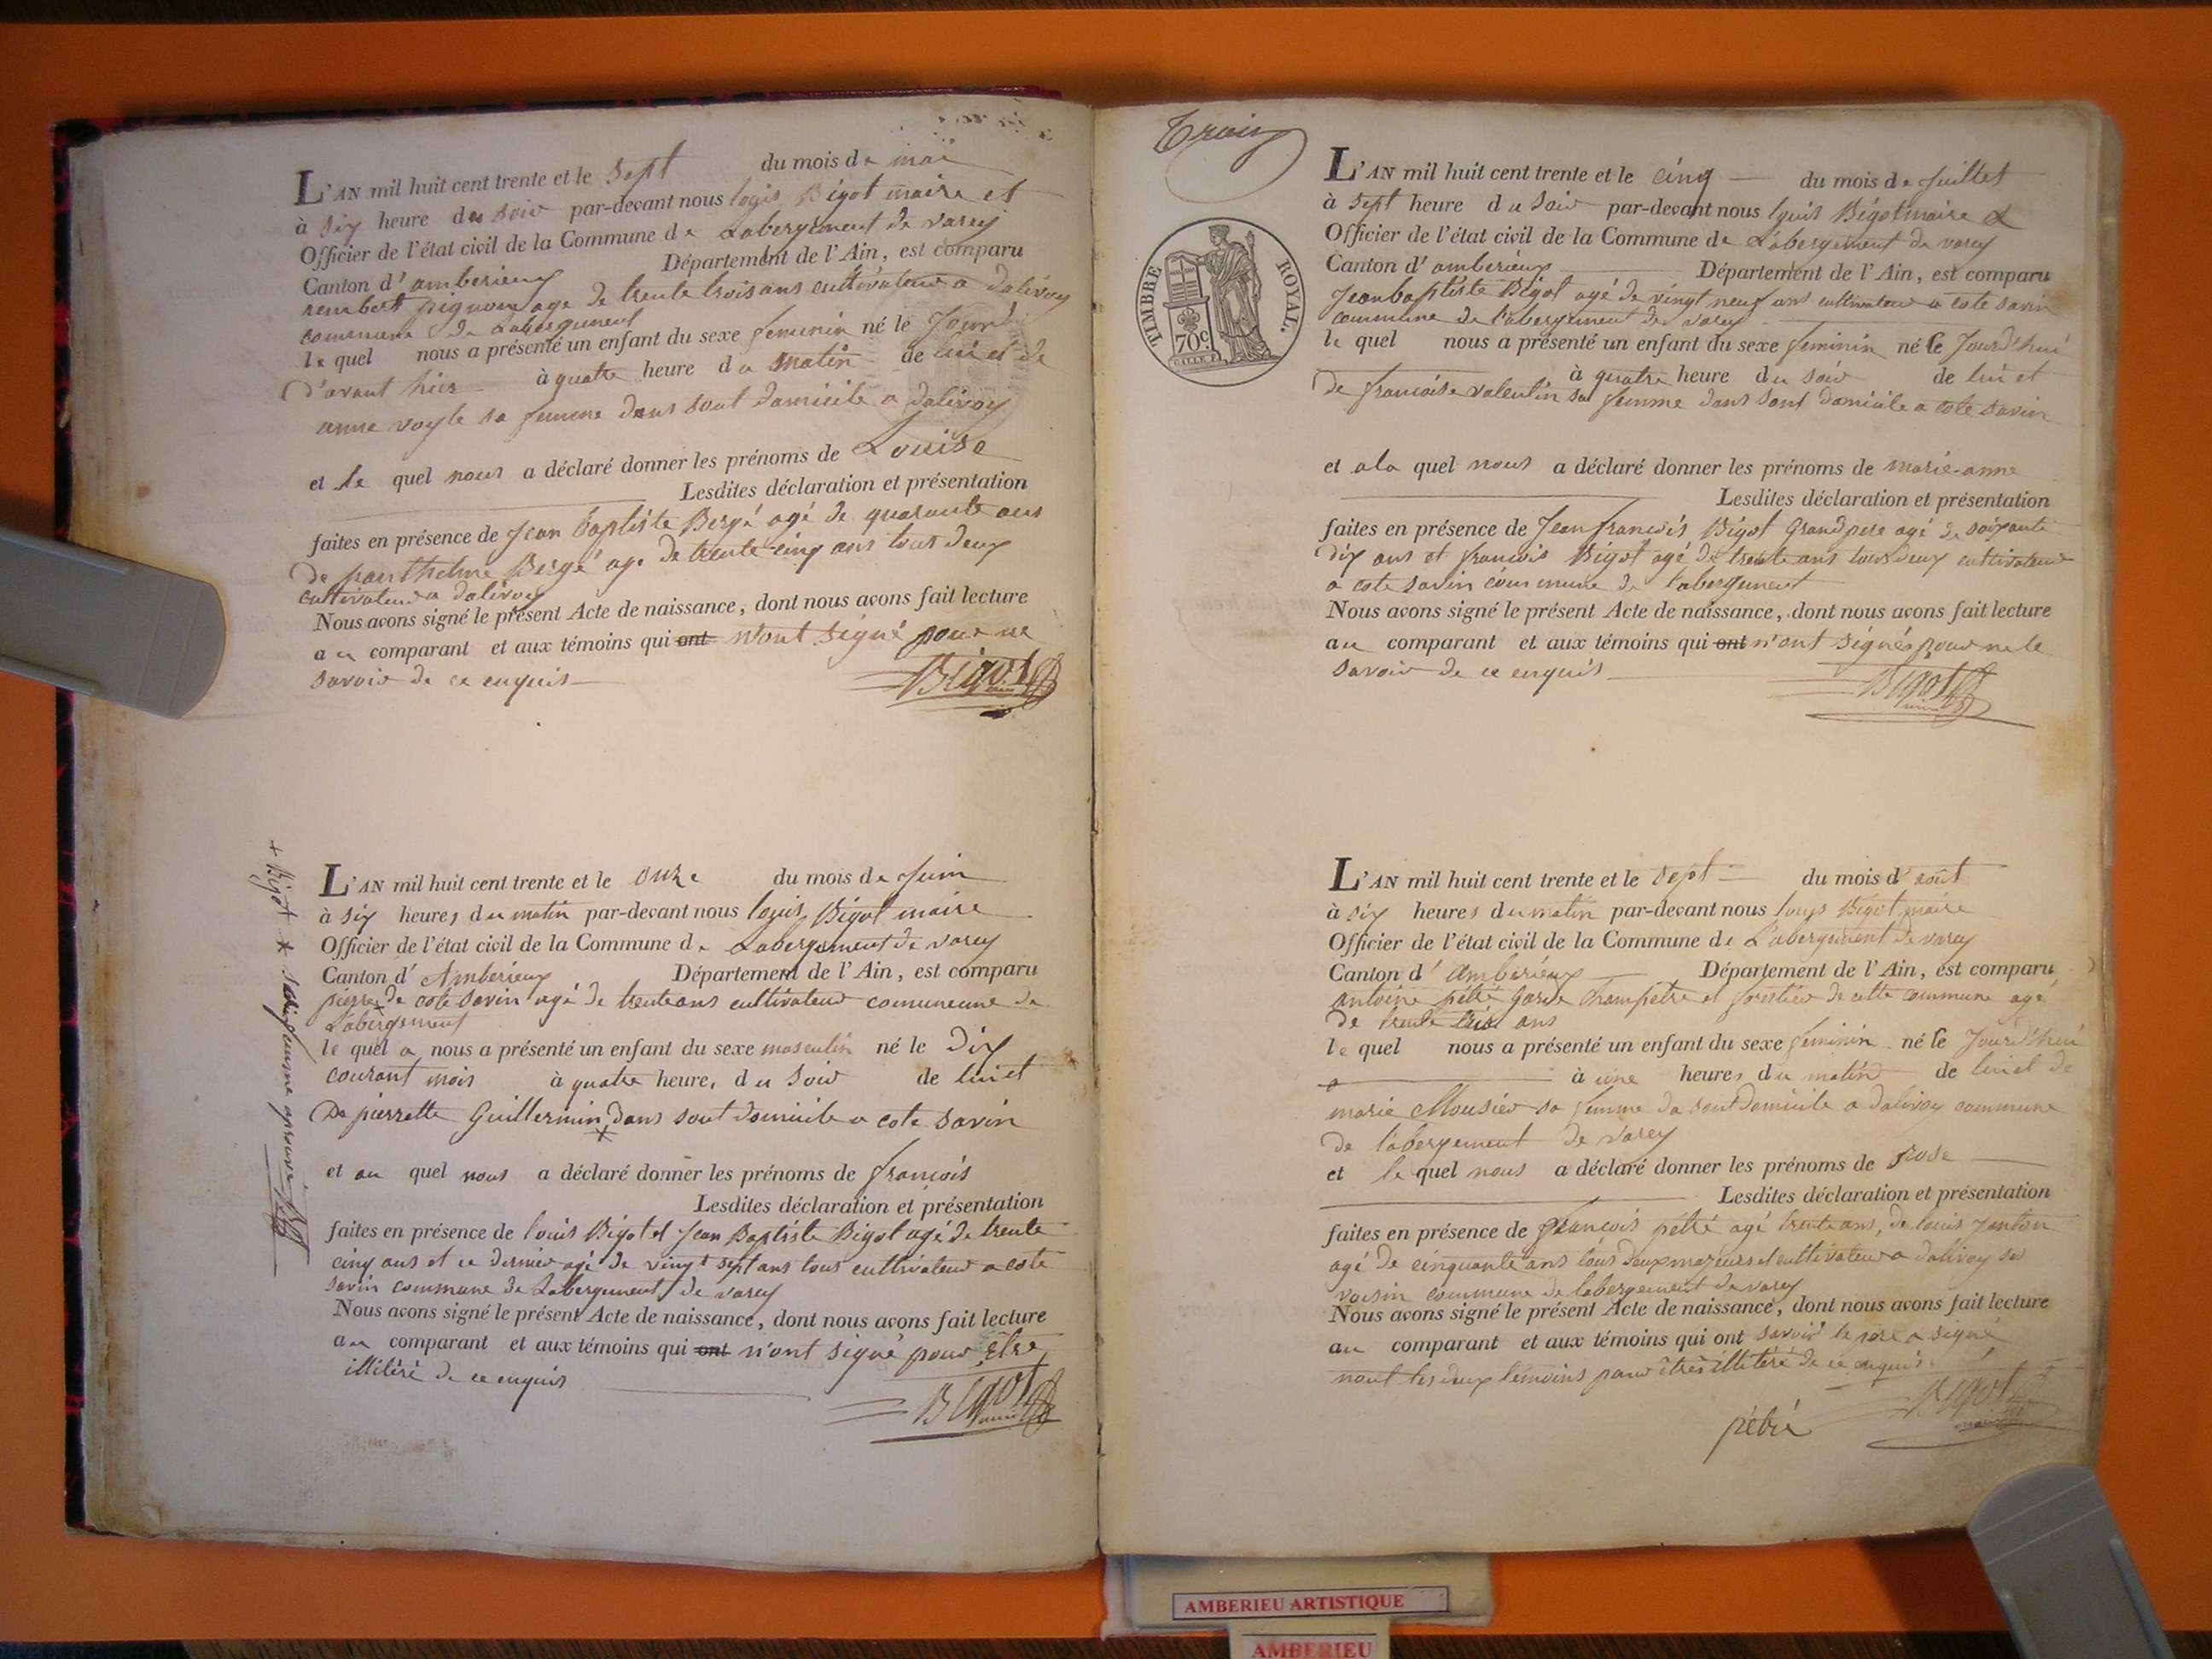 L'AN mil huit cent trente et le sept du mois de mai
à six heure du soir par-devant nous louis Bigot maire et
Officier de l'état civil de la Commune de Labergement de varey
Canton d'amberieux Département de l'Ain, est comparu
rembert pignon age de trente trois ans cultivateur a dalivoy
commune de Labergement
le quel nous a présenté un enfant du sexe feminin né le Jour
d'avant hier à quatre heure du matin de lui et de
anne voyle sa femme dans sont domicile a dalivoy
et le quel nous a déclaré donner les prénoms de Louise
Lesdites déclaration et présentation
faites en présence de Jean Baptiste Bergé agé de quarante ans
de panthelme Bergé age de trente cinq ans tous deux
cultivateur a dalivoy
Nous avons signé le présent Acte de naissance, dont nous avons fait lecture
au comparant et aux témoins qui ont n'ont signé pour ne
savoir de ce enquis
Bigot
+ Bigot * sadite femme aprouvé
L'AN mil huit cent trente et le onze du mois de Juin
à six heures du matin par-devant nous louis Bigot maire
Officier de l'état civil de la Commune de Labergement de varey
Canton d'Amberieux Département de l'Ain, est comparu
pierre de cote savin agé de trente ans cultivateur comuneune de
Labergement
le quel a nous a présenté un enfant du sexe masculin né le Dix
courant mois à quatre heure, du soir de lui et
De pierrette Guillermin dans sont domicile a cote savin
et au quel nous a déclaré donner les prénoms de francois
Lesdites déclaration et présentation
faites en présence de louis Bigot et Jean Baptiste Bigot agé de trente
cinq ans et ce dernier agé de vingt sept ans tous cultivateur a cote
savin commune de Labergement de varey
Nous avons signé le présent Acte de naissance, dont nous avons fait lecture
au comparant et aux témoins qui ont n'ont signé pour être
illitéré de ce enquis
Bigot
Trois
TIMBRE ROYAL.
70c
L'AN mil huit cent trente et le cinq du mois de Juillet
à sept heure du soir par-devant nous louis Bigot maire &
Officier de l'état civil de la Commune de L'abergement de varey
Canton d'amberieux Département de l'Ain, est comparu
Jean baptiste Bigot agé de vingt neuf ans cultivateur a cote savin
commune de l'abergement de varey
le quel nous a présenté un enfant du sexe feminin né le Jourd'hui
à quatre heure du soir de lui et
de francoise valentin sa femme dans sont domicile a cote savin
et ala quel nous a déclaré donner les prénoms de marie-anne
Lesdites déclaration et présentation
faites en présence de Jean francois Bigot Grand pere agé de soixante
dix ans et francois Bigot agé de trente ans tous deux cultivateur
a cote savin commune de l'abergement
Nous avons signé le présent Acte de naissance, dont nous avons fait lecture
au comparant et aux témoins qui ont n'ont signés pour ne le
savoir de ce enquis
Bigot
L'AN mil huit cent trente et le sept du mois d'août
à six heures du matin par-devant nous louis Bigot maire
Officier de l'état civil de la Commune de L'abergement de varey
Canton d'Amberieux Département de l'Ain, est comparu
antoine pétré Garde Champetre et forestier de cette commune agé
de trente trois ans
le quel nous a présenté un enfant du sexe feminin né le Jourd'hui
à une heures du matin de lui et de
marie Mousier sa femme da sont Domicile a dalivoy commune
de l'abergement de varey
et le quel nous a déclaré donner les prénoms de Rose
Lesdites déclaration et présentation
faites en présence de francois pétré agé trente ans, de louis Janton
agé de cinquante ans tous deux majeurs et cultivateur a dalivoy ses
voisin commune de labergement de varey
Nous avons signé le présent Acte de naissance, dont nous avons fait lecture
au comparant et aux témoins qui ont savoir le pere a signé
nont les deux témoins pour être illitéré de ce enquis
Bigot
pétré
AMBERIEU ARTISTIQUE
AMBERIEU